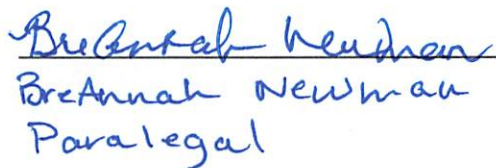 BreAnnah Newman
BreAnnah Newman
Paralegal